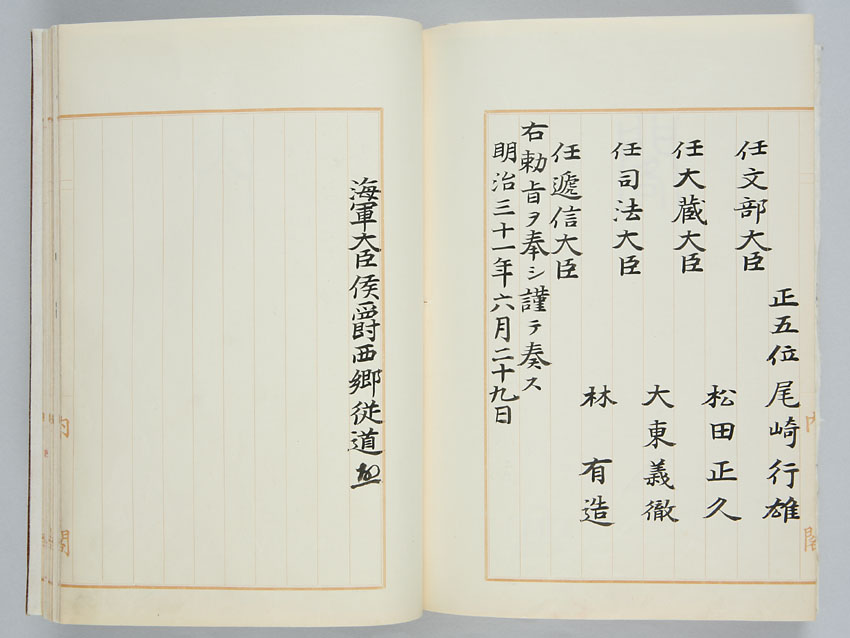 任文部大臣
正五位 尾崎行雄
任大蔵大臣
松田正久
任司法大臣
大東義徹
任逓信大臣
林有造
右勅旨ヲ奉シ謹テ奏ス
明治三十一年六月二十九日
海軍大臣侯爵西郷従道
内閣
内閣